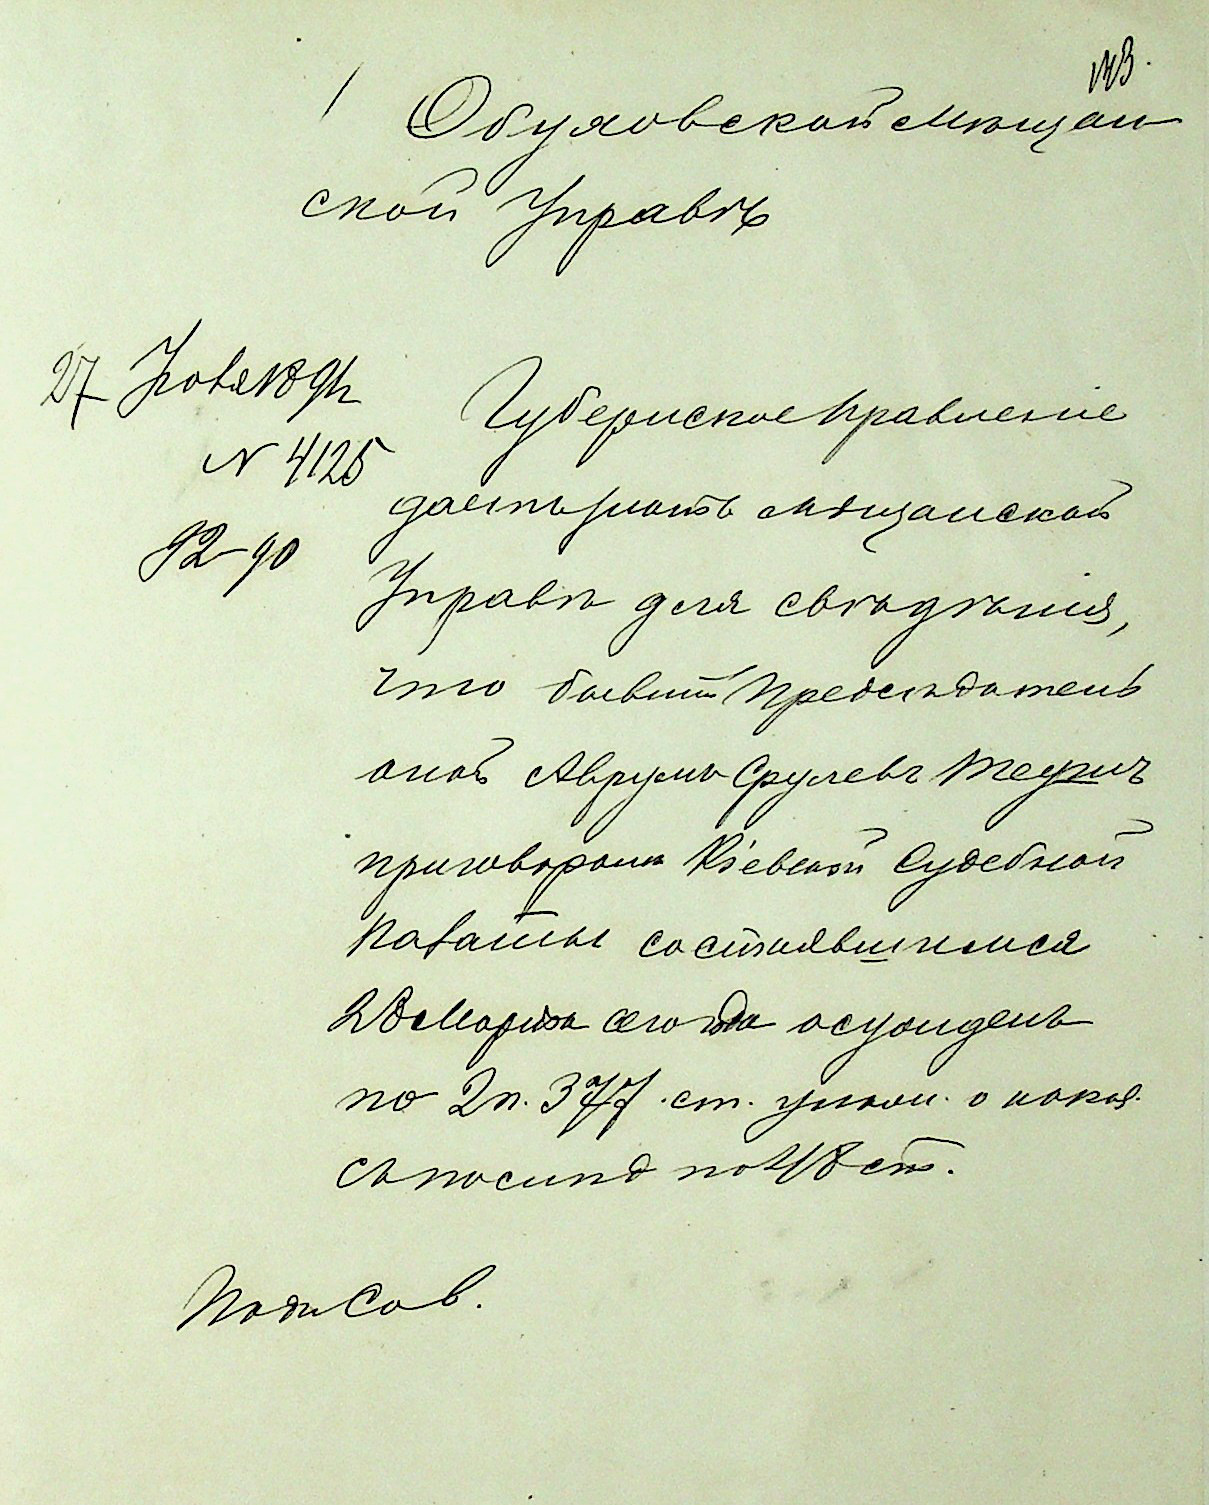 Обуховской мѣщан
ской Управѣ
27 Ноября 1891 г.
№ 4125
92-90
Губернское Правленіе
даетъ знать мѣщанской
Управѣ для свѣдѣнія,
что бывшій Предсѣдатель
оной Аврумъ Срулевъ
приговоромъ Кіевской Судебной
Палаты состоявшимся
28 Марта сего года осужденъ
по 2 п. 377 ст. улож. о наказ.
съ послѣд по 48 ст.
Подп Сов.